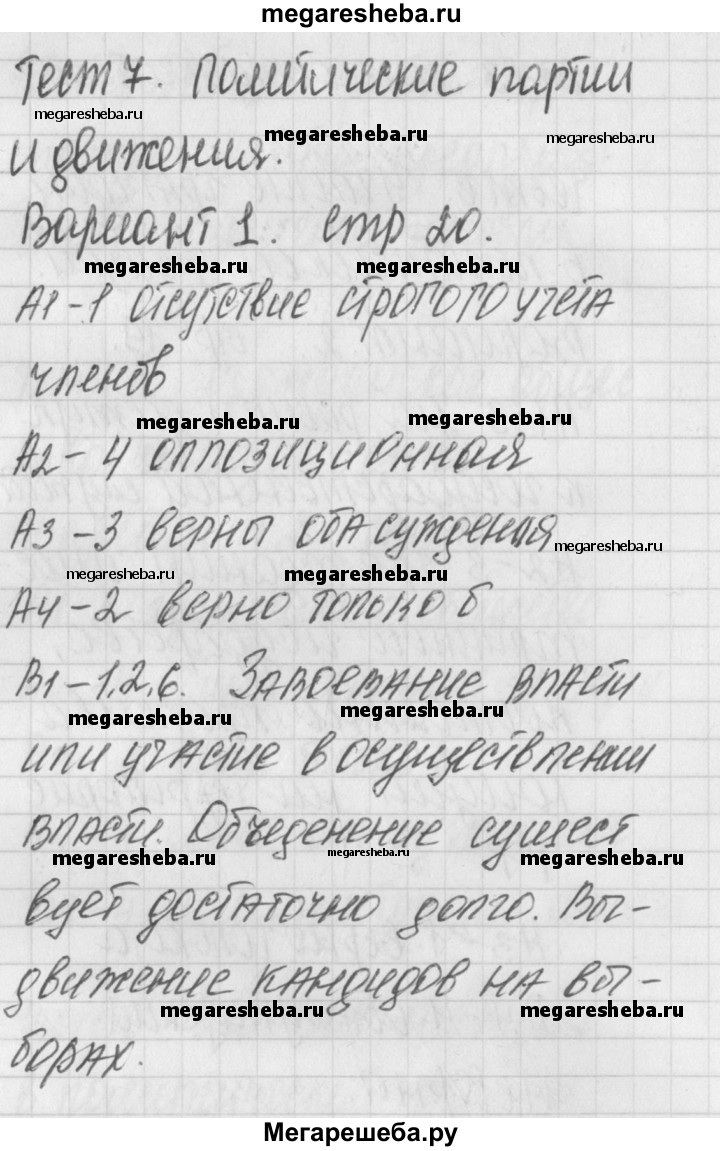 megaresheba.ru
Тест 7. Политические партии
megaresheba.ru megaresheba.ru megaresheba.ru
и движения.
Вариант 1. стр 20.
megaresheba.ru megaresheba.ru
А1-1 отсутствие строгого учета
членов
megaresheba.ru megaresheba.ru
А2-4 оппозиционная
А3-3 верны оба суждения
megaresheba.ru
megaresheba.ru megaresheba.ru
А4-2 верно только б
В1-1,2,6. Завоевание власти
megaresheba.ru megaresheba.ru
или участие в осуществлении
власти. Объеденение сущест
megaresheba.ru megaresheba.ru megaresheba.ru
вует достаточно долго. Вы-
движение кандидов на вы-
megaresheba.ru megaresheba.ru
борах.
Мегарешеба.ру